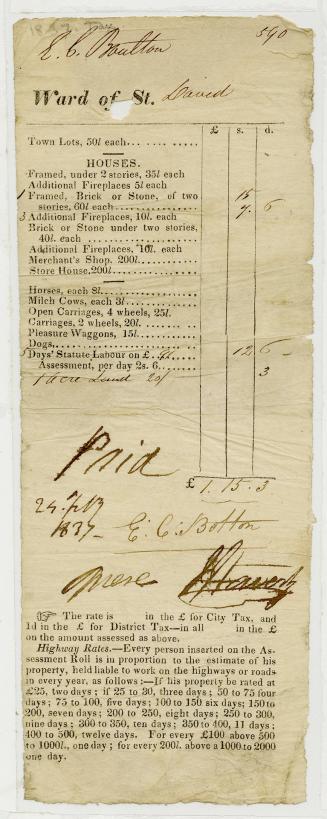 E. C. Boulton 590
Ward of St. David
£ s. d.
Town Lots, 50l each
HOUSES.
Framed, under 2 stories, 35l each
Additional Fireplaces 5l each
1 Framed, Brick or Stone, of two 15
stories, 60l each
3 Additional Fireplaces, 10l. each 7 6
Brick or Stone under two stories,
40l. each
Additional Fireplaces, 10l. each
Merchant's Shop. 200l.
Store House. 200l.
Horses, each 8l.
Milch Cows, each 3l.
Open Carriages, 4 wheels, 25l.
Carriages, 2 wheels, 20l.
Pleasure Waggons, 15l.
Dogs,
5 Days' Statute Labour on £ 12 6
Assessment, per day 2s. 6 3
1 acre Land 20/
Paid
£ 1. 15. 3
1837 E. C. Botton
☞ The rate is in the £ for City Tax, and
1d in the £ for District Tax—in all in the £
on the amount assessed as above.
Highway Rates.—Every person inserted on the As-
sessment Roll is in proportion to the estimate of his
property, held liable to work on the highways or roads
in every year, as follows:—If his property be rated at
£25, two days; if 25 to 30, three days; 50 to 75 four
days; 75 to 100, five days; 100 to 150 six days; 150 to
200, seven days; 200 to 250, eight days; 250 to 300,
nine days; 300 to 350, ten days; 350 to 400, 11 days;
400 to 500, twelve days. For every £100 above 500
to 1000l., one day; for every 200l. above a 1000 to 2000
one day.